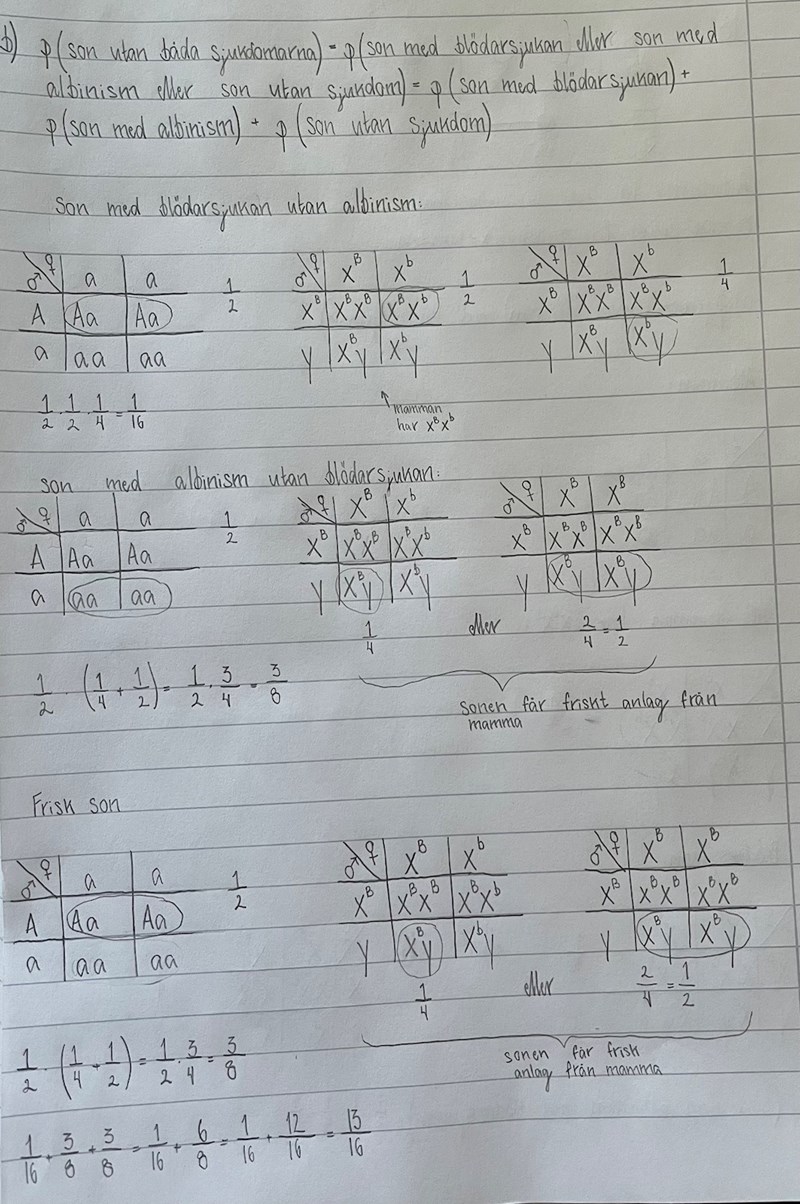 b) p(son utan båda sjukdomarna) = p(son med blödarsjukan eller son med
albinism eller son utan sjukdom) = p(son med blödarsjukan) +
p(son med albinism) + p(son utan sjukdom)
Son med blödarsjukan utan albinism:
♂ ♀ a a
A Aa Aa
a aa aa
1/2
♂ ♀ X^B X^b
X^B X^BX^B X^BX^b
Y X^BY X^bY
1/2
↑ mamman
har X^BX^b
♂ ♀ X^B X^b
X^B X^BX^B X^BX^b
Y X^BY X^bY
1/4
1/2 · 1/2 · 1/4 = 1/16
son med albinism utan blödarsjukan:
♂ ♀ a a
A Aa Aa
a aa aa
1/2
♂ ♀ X^B X^b
X^B X^BX^B X^BX^b
Y X^BY X^bY
1/4
eller
♂ ♀ X^B X^B
X^B X^BX^B X^BX^B
Y X^BY X^BY
2/4 = 1/2
sonen får friskt anlag från
mamma
1/2 · (1/4 + 1/2) = 1/2 · 3/4 = 3/8
Frisk son
♂ ♀ a a
A Aa Aa
a aa aa
1/2
♂ ♀ X^B X^b
X^B X^BX^B X^BX^b
Y X^BY X^bY
1/4
eller
♂ ♀ X^B X^B
X^B X^BX^B X^BX^B
Y X^BY X^BY
2/4 = 1/2
sonen får frisk
anlag från mamma
1/2 · (1/4 + 1/2) = 1/2 · 3/4 = 3/8
1/16 + 3/8 + 3/8 = 1/16 + 6/8 = 1/16 + 12/16 = 13/16